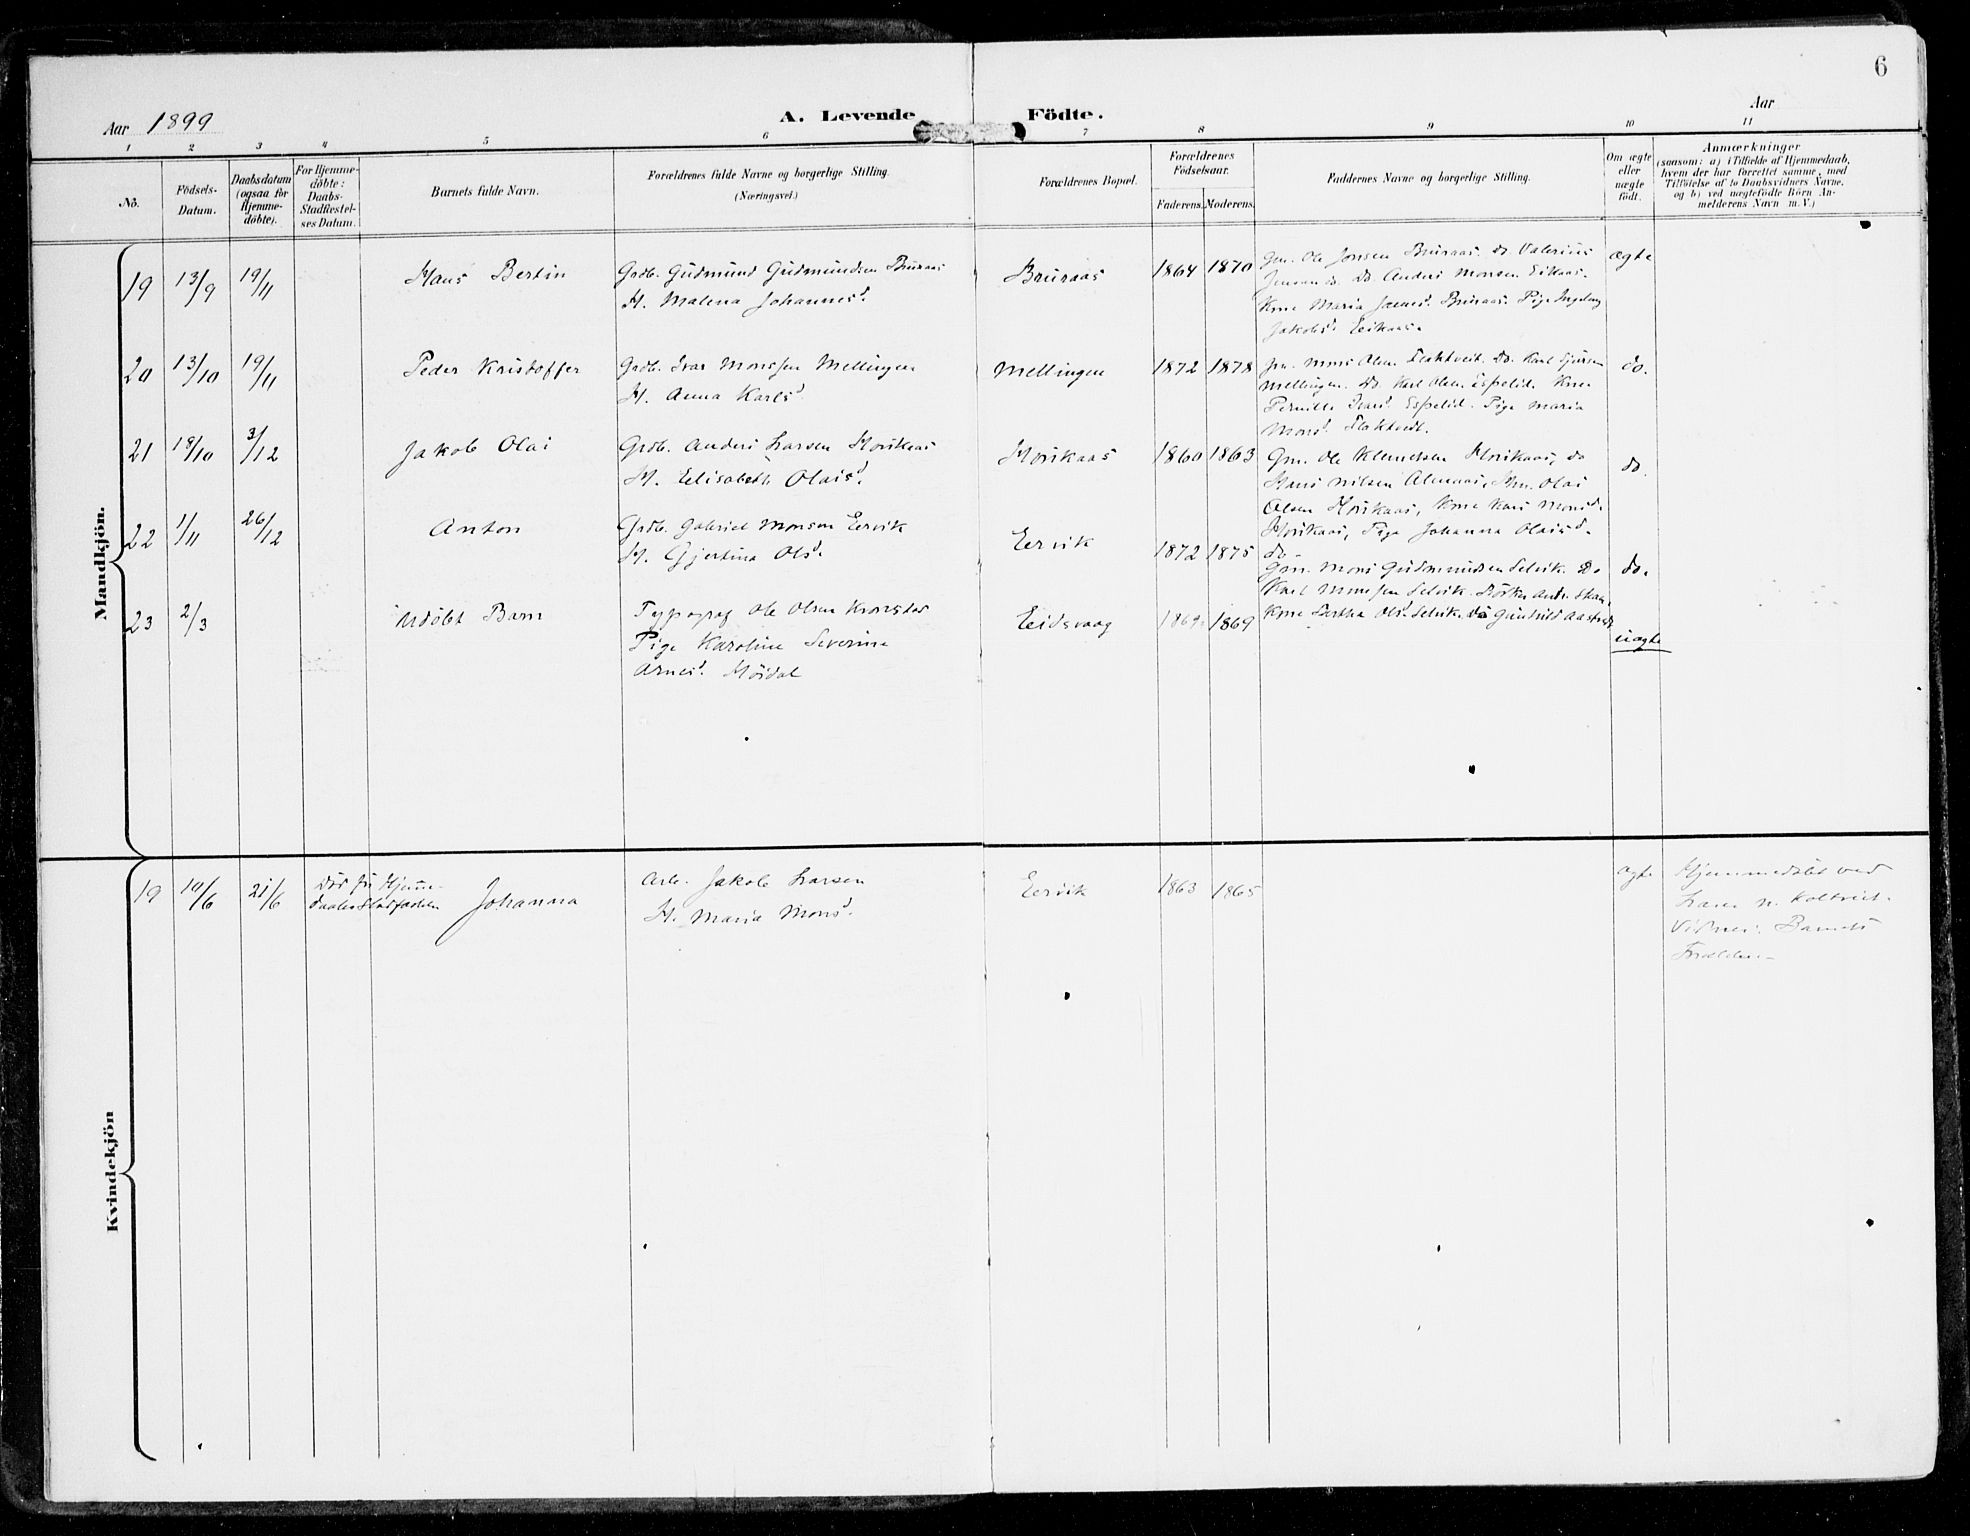 6
Aar 1899
A. Levende Födte.
Aar
1 2 3 4 5 6 7 8 9 10 11
No.
Födsels-
Datum.
Daabsdatum
(ogsaa for
Hjemme-
döbte).
For Hjemme-
döbte:
Daabs-
Stadfæstel-
ses Datum.
Barnets fulde Navn.
Forældrenes fulde Navne og borgerlige Stilling.
(Næringsvei.)
Forældrenes Bopæl.
Forældrenes
Födselsaar.
Faderens. Moderens.
Faddernes Navne og borgerlige Stilling.
Om ægte
eller
uægte
födt.
Anmærkninger
(saasom: a) i Tilfælde af Hjemmedaab,
hvem der har forrettet samme, med
Tilföielse af to Daabsvidners Navne,
og b) ved uægtefödte Börn An-
melderens Navn m. V.)
Mandkjön.
19 13/9 19/11
Hans Bertin
Grdb. Gudmund Gudmundsen Bruraas
H. Malena Johannesd.
Bruraas
1864 1870
Gm. Ole Jonsen Bruraas. do Valerius
Jensen do. Do. Anders Monsen Eikaas.
Kone Maria Bruraas. Pige Ingeborg
Jakobsd. Eikaas.
ægte
20 13/10 19/11
Peder Kristoffer
Grdb. Ivar Monssen Mellingen
H. Anna Karlsd.
Mellingen
1872 1878
Gm. Mons Olsen Flaktveit. Do. Karl
Mellingen. Do Karl Olsen Espelid. Kone
Pernille Ivarsd. Espelid. Pige Maria
Monsd. Flaktvedt.
do.
21 19/10 3/12
Jakob Olai
Grdb. Anders Larsen Horikaas
H. Elisabeth Olaisd.
Horikaas
1860 1863
Gm. Ole Klemetsen Horikaas, do
Hans Nilsen Almaas, Olai
Olsen Horikaas, Kone Kari Monsd.
Horikaas, Pige Johanna Olaisd.
do.
do.
22 1/11 26/12
Anton
Grdb. Gabriel Monsen Eervik
H. Gjertina Olsd.
Eervik
1872 1875
Gm. Mons Gudmundsen Selvik. Do
Karl Monsen Selvik.
Kone Bertha Olsd. Selvik, do Gunhild
do.
23 2/3
Udöbt Barn
Typograf Ole Olsen Kronstad
Pige Karoline Severine
Arnesd. Höidal
Eidsvaag
1869 1869
uægte
Kvindekjön
19 10/6 21/6
Död för Hjemme-
daabs Stadfæstelsen
Johanna
Arb. Jakob Larsen
H. Maria Monsd.
Eervik
1863 1865
ægte
Hjemmedöbt ved
Lærer N. Koltveit.
Vidner: Barnets
Forældre.